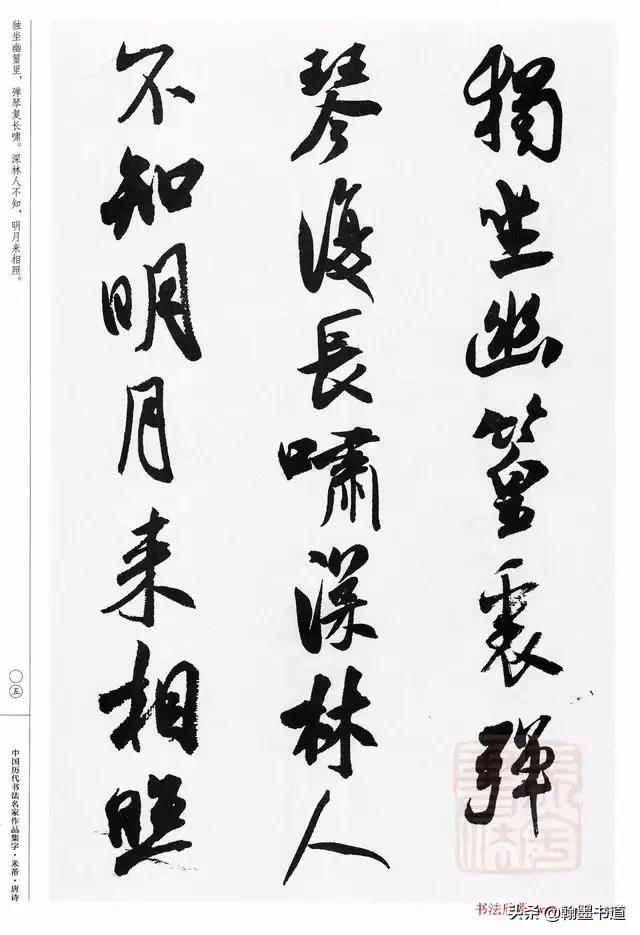 獨坐幽篁裏彈
琴復長嘯深林人
不知明月来相照
独坐幽篁里，弹琴复长啸。深林人不知，明月来相照。
〇五
中国历代书法名家作品集字·米芾·唐诗
书法欣赏
头条@翰墨书道